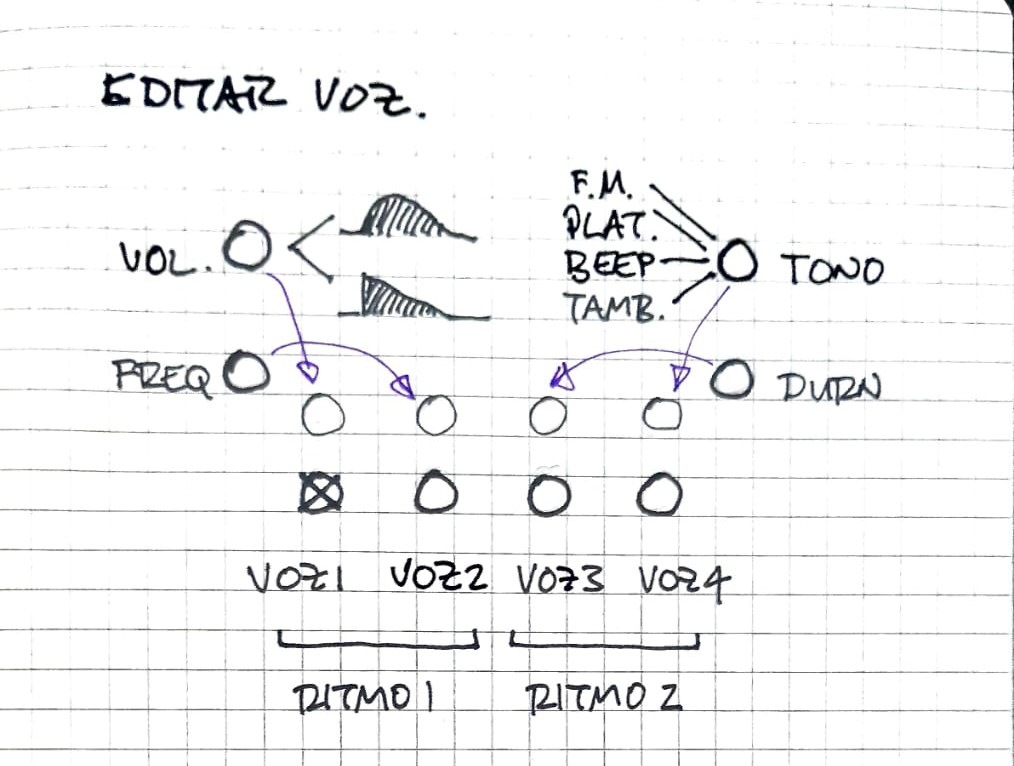 EDITAR VOZ.
F.M.
PLAT.
VOL.
BEEP
TONO
TAMB.
FREQ
DURN
VOZ1 VOZ2 VOZ3 VOZ4
RITMO 1 RITMO 2